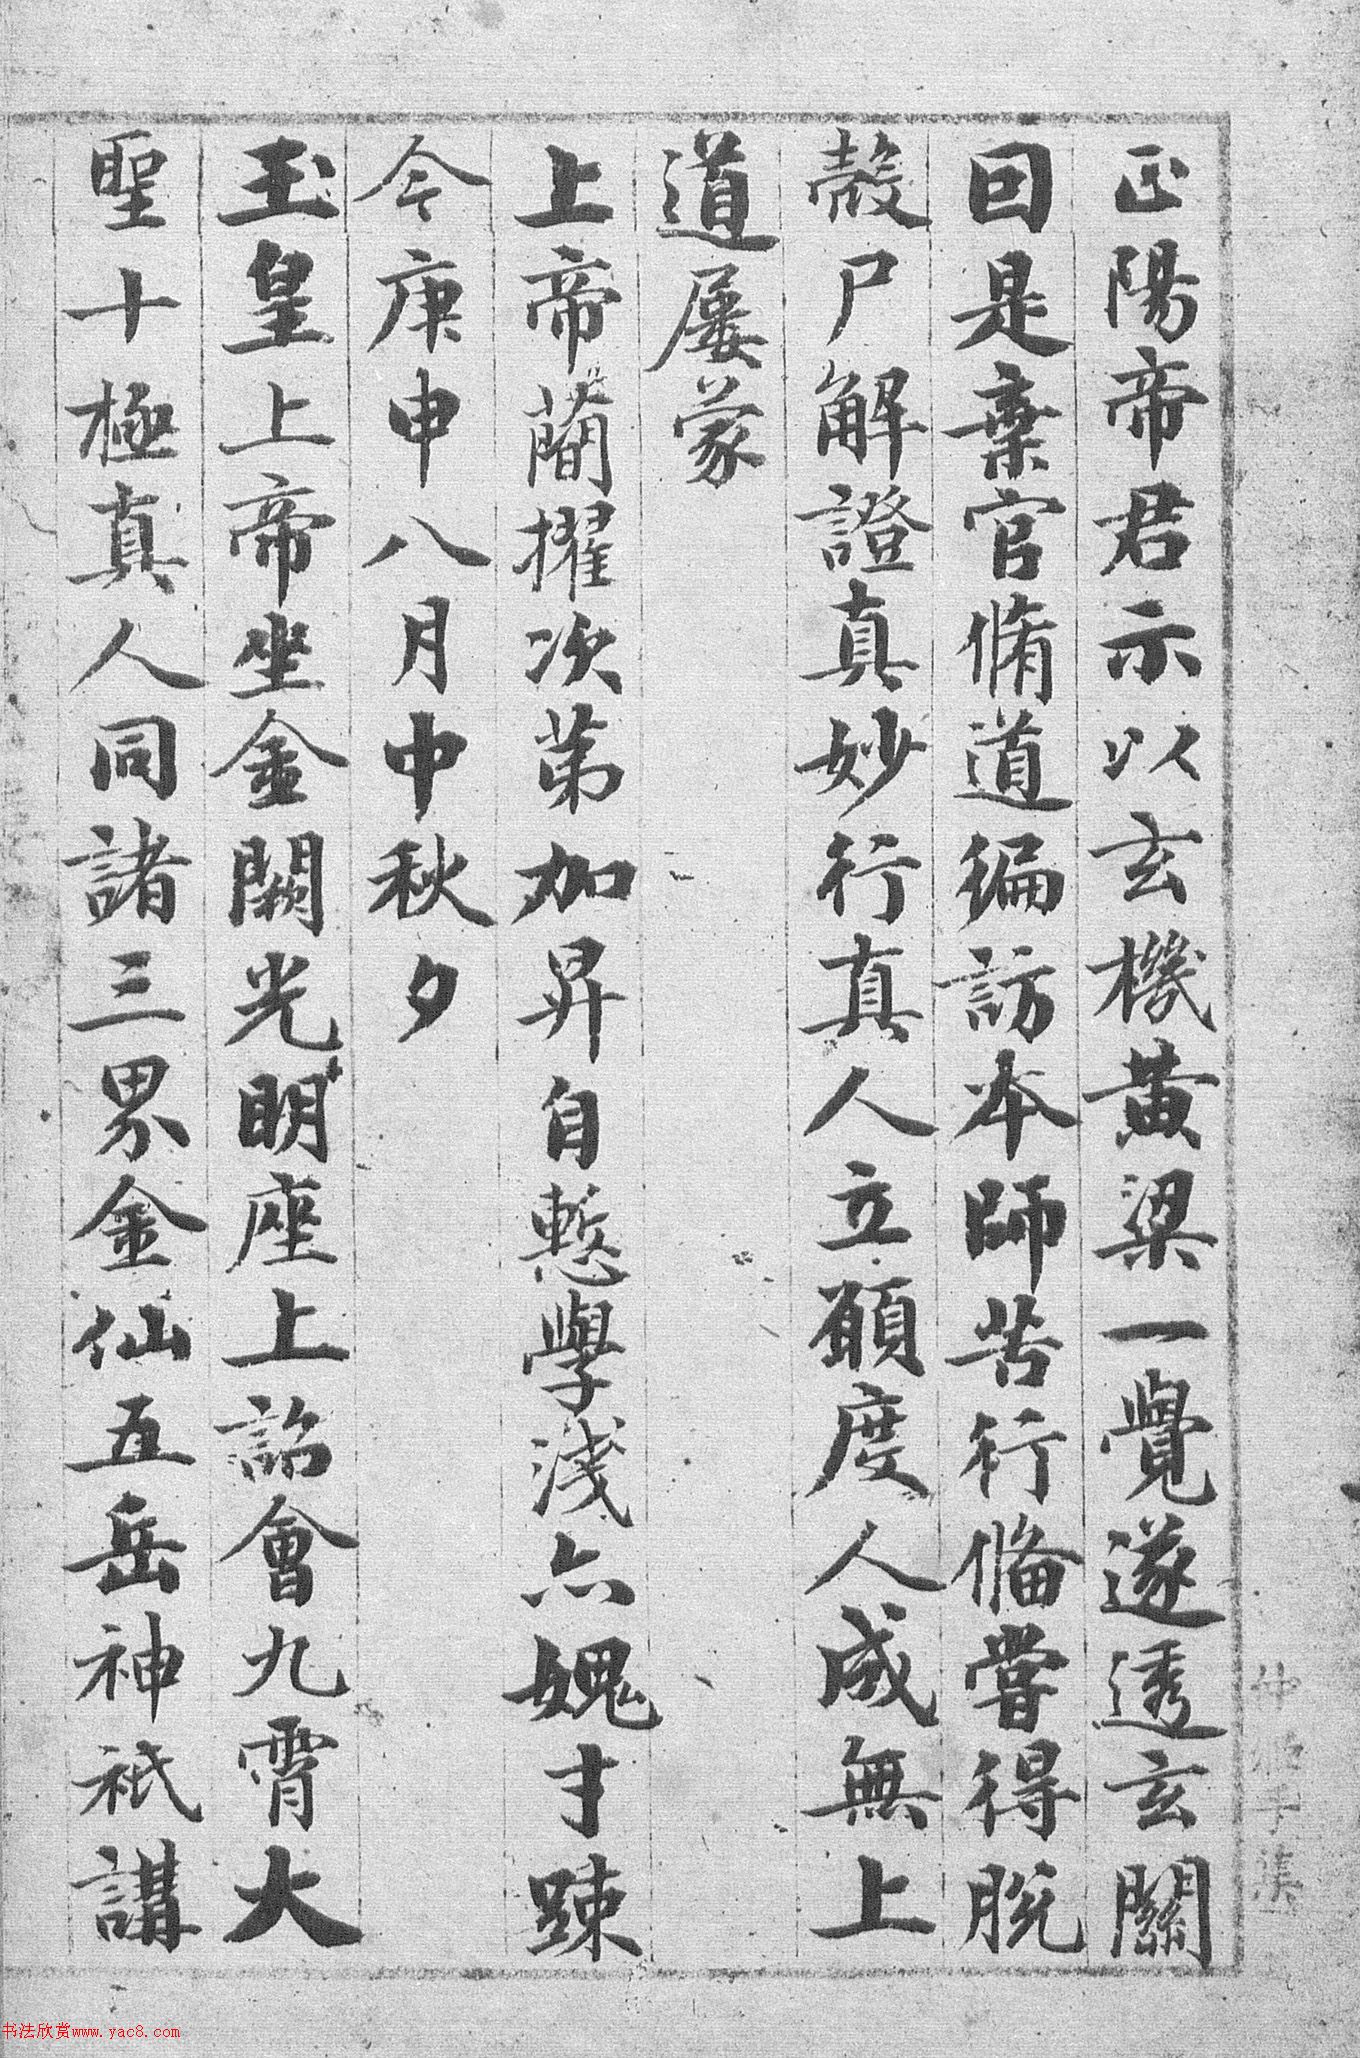 正陽帝君示以玄機黄粱一覺遂透玄關
因是棄官脩道徧訪本師苦行備嘗得脱
殻尸解證真妙行真人立願度人成無上
道屡蒙
上帝蕳擢次第加昇自慙學淺亦媿才踈
今庚申八月中秋夕
玉皇上帝坐金闕光明座上詔會九霄大
聖十極真人同諸三界金仙五岳神祇講
书法欣赏www.yac8.com